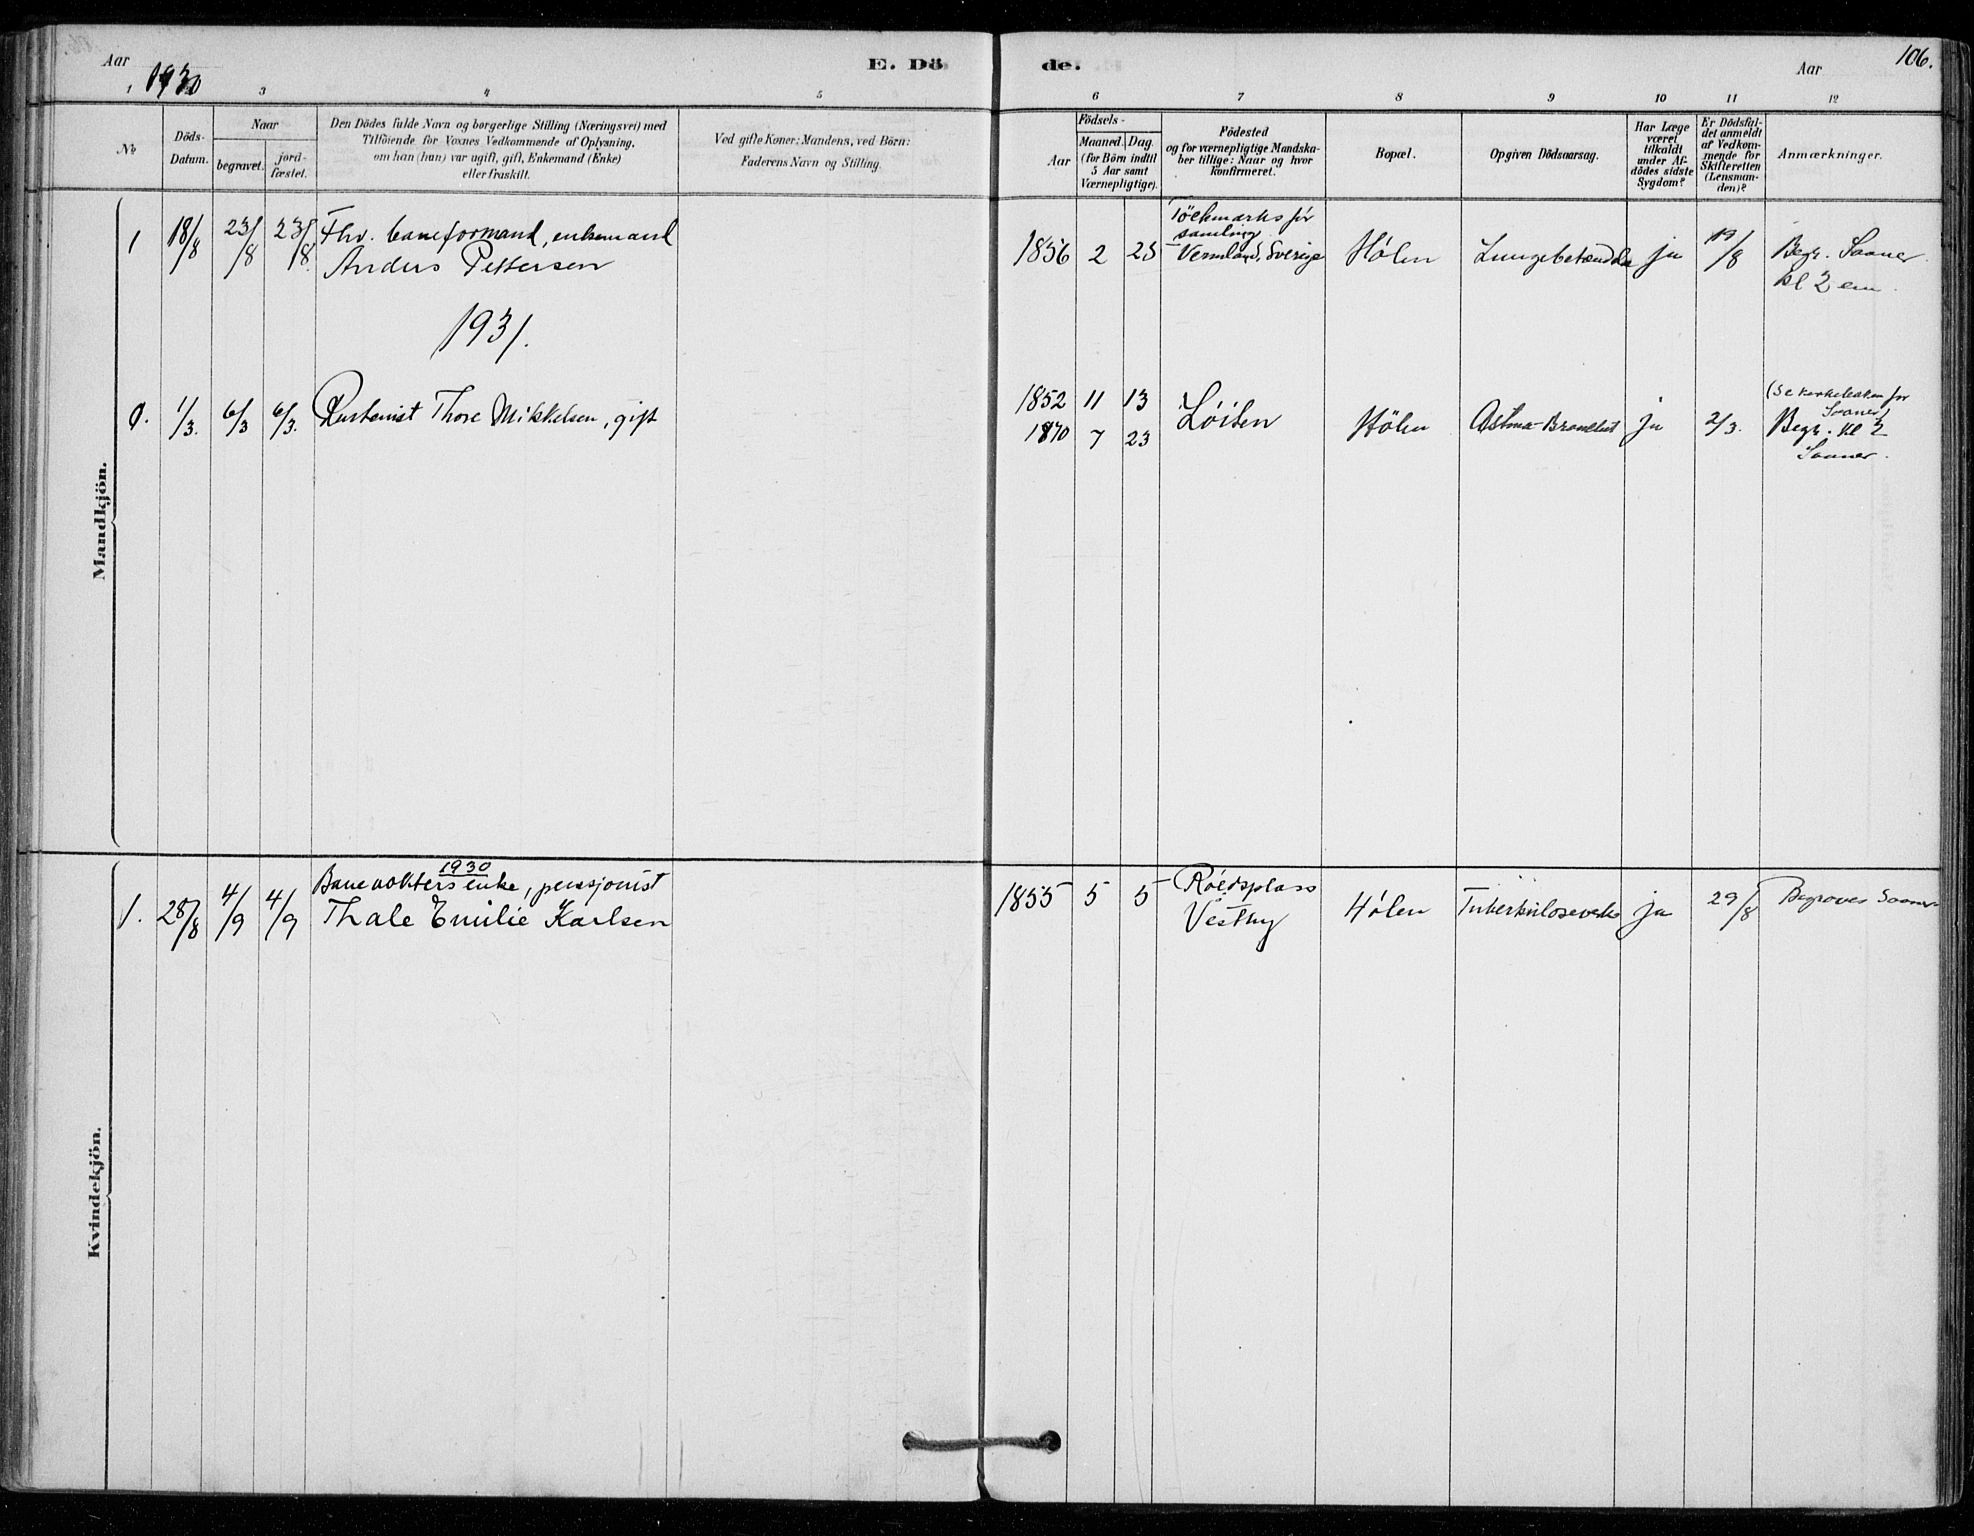 Aar 1930
E. Dö de.
Aar
106.
1 3 4 5 6 7 8 9 10 11 12
No
Döds-Datum.
Naar
begravet.
jordfæstet.
Den Dödes fulde Navn og borgerlige Stilling (Næringsvei) med
Tilföiende for Voxnes Vedkommende af Oplysning,
om han (hun) var ugift, gift, Enkemand (Enke)
eller fraskilt.
Ved gifte Koner: Mandens, ved Börn:
Faderens Navn og Stilling.
Födsels-
Aar
Maaned.
Dag.
(for Börn indtil
5 Aar samt
Værnepligtige).
Födested
og for værnepligtige Mandska-
ber tillige: Naar og hvor
konfirmeret.
Bopæl.
Opgiven Dödsaarsag.
Har Læge
været
tilkaldt
under Af-
dödes sidste
Sygdom?
Er Dödsfal-
det anmeldt
af Vedkom-
mende for
Skifteretten
(Lensman-
den)?
Anmærkninger.
Mandkjön.
1 18/8 23/8 23/8 Fhv. baneformand, enkemand
Anders Pettersen
1856 2 25 Töckmarks för
samling
Vermland, Sverige
Hølen
ja 19/8 Begr. Saaner
kl 2 em.
1931.
0. 1/3. 6/3 6/3. Thore Mikkelsen, gift
1852 11 13
1870 7 23
Løiten Hölen Astma-Bronchit ja 2/3.
(Se kirkeboken for
Saaner)
Begr. kl 2
Saaner.
Kvindekjön.
1930
1. 28/8 4/9 4/9 Banevokters enke, pensjonist
Thale Emilie Karlsen
1855 5 5 Röedsplass
Vestby
Hølen ja 29/8 Begraves Saaner